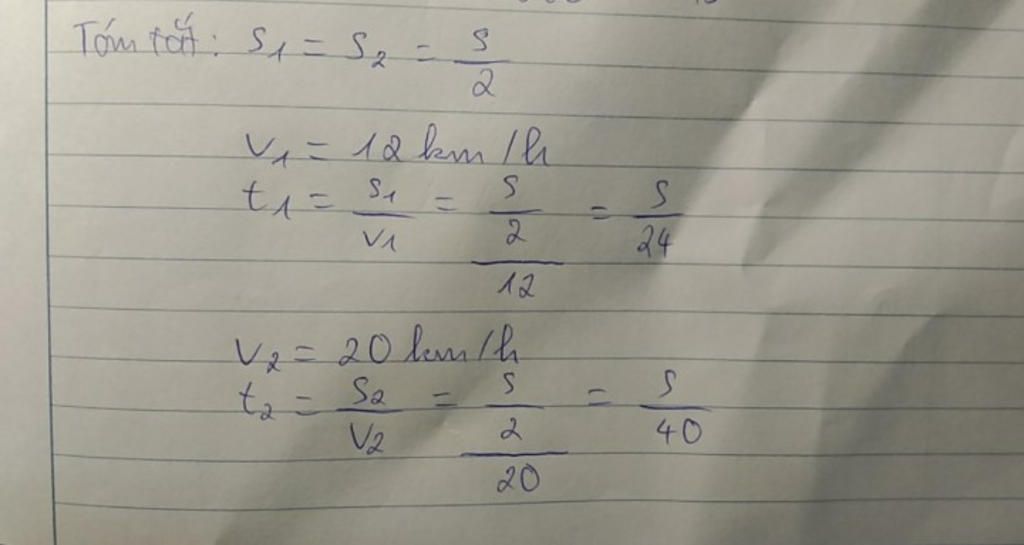 Tóm tắt: S₁ = S₂ = S/2
V₁ = 12 km/h
t₁ = S₁/V₁ = (S/2)/12 = S/24
V₂ = 20 km/h
t₂ = S₂/V₂ = (S/2)/20 = S/40